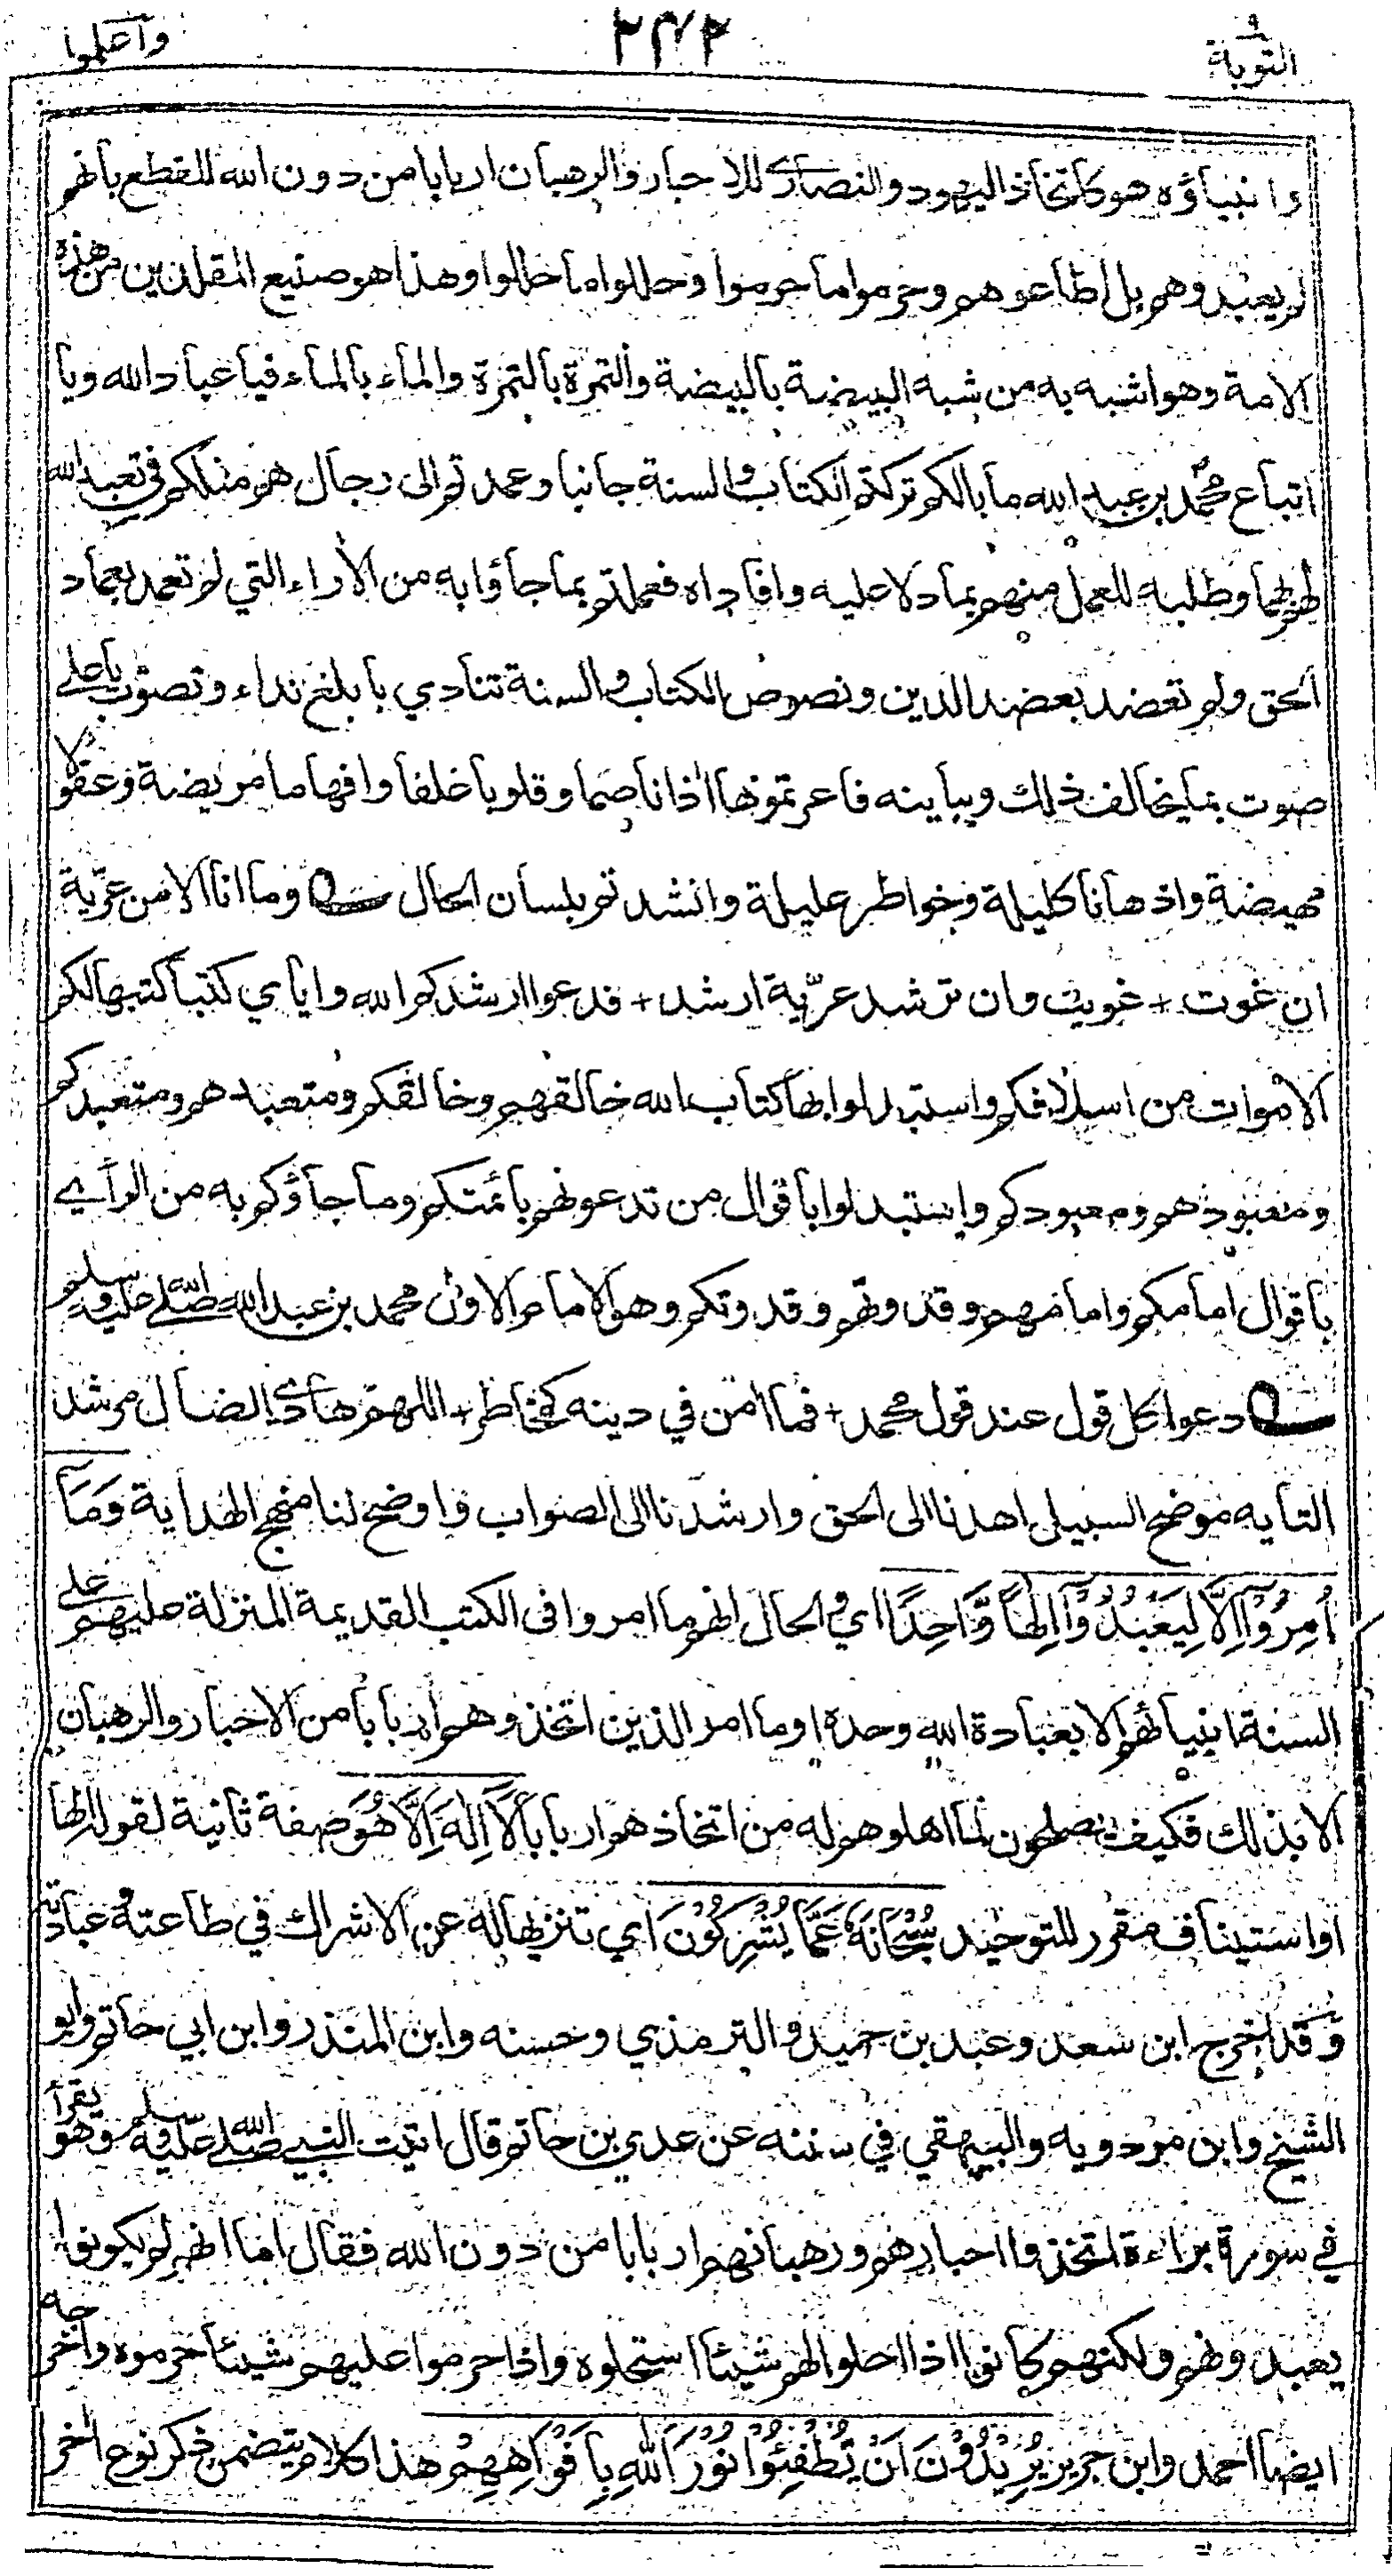 التوبة ٩
٢٤٢
واعلموا
وانبياؤه هو كاتخاذ اليهود والنصارى للاحبار والرهبان اربابا من دون الله للقطع بأنهم
لم يعبدوهم بل اطاعوهم وحرموا ما حرموا وحللوا ما حللوا وهذا هو صنيع المقلدين من هذه
الامة وهو اشبه به من شبه البيضة بالبيضة والتمرة بالتمرة والماء بالماء فيا عباد الله ويا
اتباع محمد بن عبد الله ما بالكم تركتم الكتاب والسنة جانبا وعمدتم الى رجال هم مثلكم في تعبد الله
لهم بهما وطلبه للعمل منهم بما دلا عليه وافاداه فعملتم بما جاؤا به من الأراء التي لم تعمد بعماد
الحق ولم تعضد بعضد الدين ونصوص الكتاب والسنة تنادي بابلغ نداء وتصوت باعلى
صوت بما يخالف ذلك ويباينه فاعرتموها اذانا صما وقلوبا غلفا وافهاما مريضة وعقولا
مهيضة واذهانا كليلة وخواطر عليلة وانشدتم بلسان الحال وما انا الا من غزية
ان غوت + غويت وان ترشد غزية ارشد + فدعوا ارشدكم الله واياي كتبا كتبها لكم
الاموات من اسلافكم واستبدلوا بها كتاب الله خالقهم وخالقكم ومتعبدهم ومتعبدكم
ومعبودهم ومعبودكم واستبدلوا باقوال من تدعونهم بائمتكم وما جاؤكم به من الرأي
باقوال امامكم وامامهم وقدوتهم وقدوتكم وهو الامام الاول محمد بن عبد الله صلى الله عليه وسلم
دعوا كل قول عند قول محمد + فما امن في دينه كمخاطر + اللهم هادي الضال مرشد
التايه موضح السبيل اهدنا الى الحق وارشدنا الى الصواب واوضح لنا منهج الهداية وَمَآ
اُمِرُوْآ اِلَّا لِيَعْبُدُوْآ اِلٰهًا وَّاحِدًا اي والحال انهم ما امروا في الكتب القديمة المنزلة عليهم على
السنة انبيائهم الا بعبادة الله وحده او ما امر الذين اتخذوهم اربابا من الاحبار والرهبان
الا بذلك فكيف يصلحون لما اهلوهم له من اتخاذهم اربابا لَآ اِلٰهَ اِلَّا هُوَ صفة ثانية لقوله الها
او استيناف مقرر للتوحيد سُبْحَانَهٗ عَمَّا يُشْرِكُوْنَ اي تنزيها له عن الاشراك في طاعته وعبادته
وقد اخرج ابن سعد وعبد بن حميد والترمذي وحسنه وابن المنذر وابن ابي حاتم وابو
الشيخ وابن مردويه والبيهقي في سننه عن عدي بن حاتم قال اتيت النبي صلى الله عليه وسلم وهو يقرأ
في سورة براءة اتخذوا احبارهم ورهبانهم اربابا من دون الله فقال اما انهم لم يكونوا
يعبدونهم ولكنهم كانوا اذا احلوا لهم شيئا استحلوه واذا حرموا عليهم شيئا حرموه واخرجه
ايضا احمد وابن جرير يُرِيْدُوْنَ اَنْ يُّطْفِئُوْا نُوْرَ اللهِ بِاَفْوَاهِهِمْ هذا كلام يتضمن ذكر نوع اخر